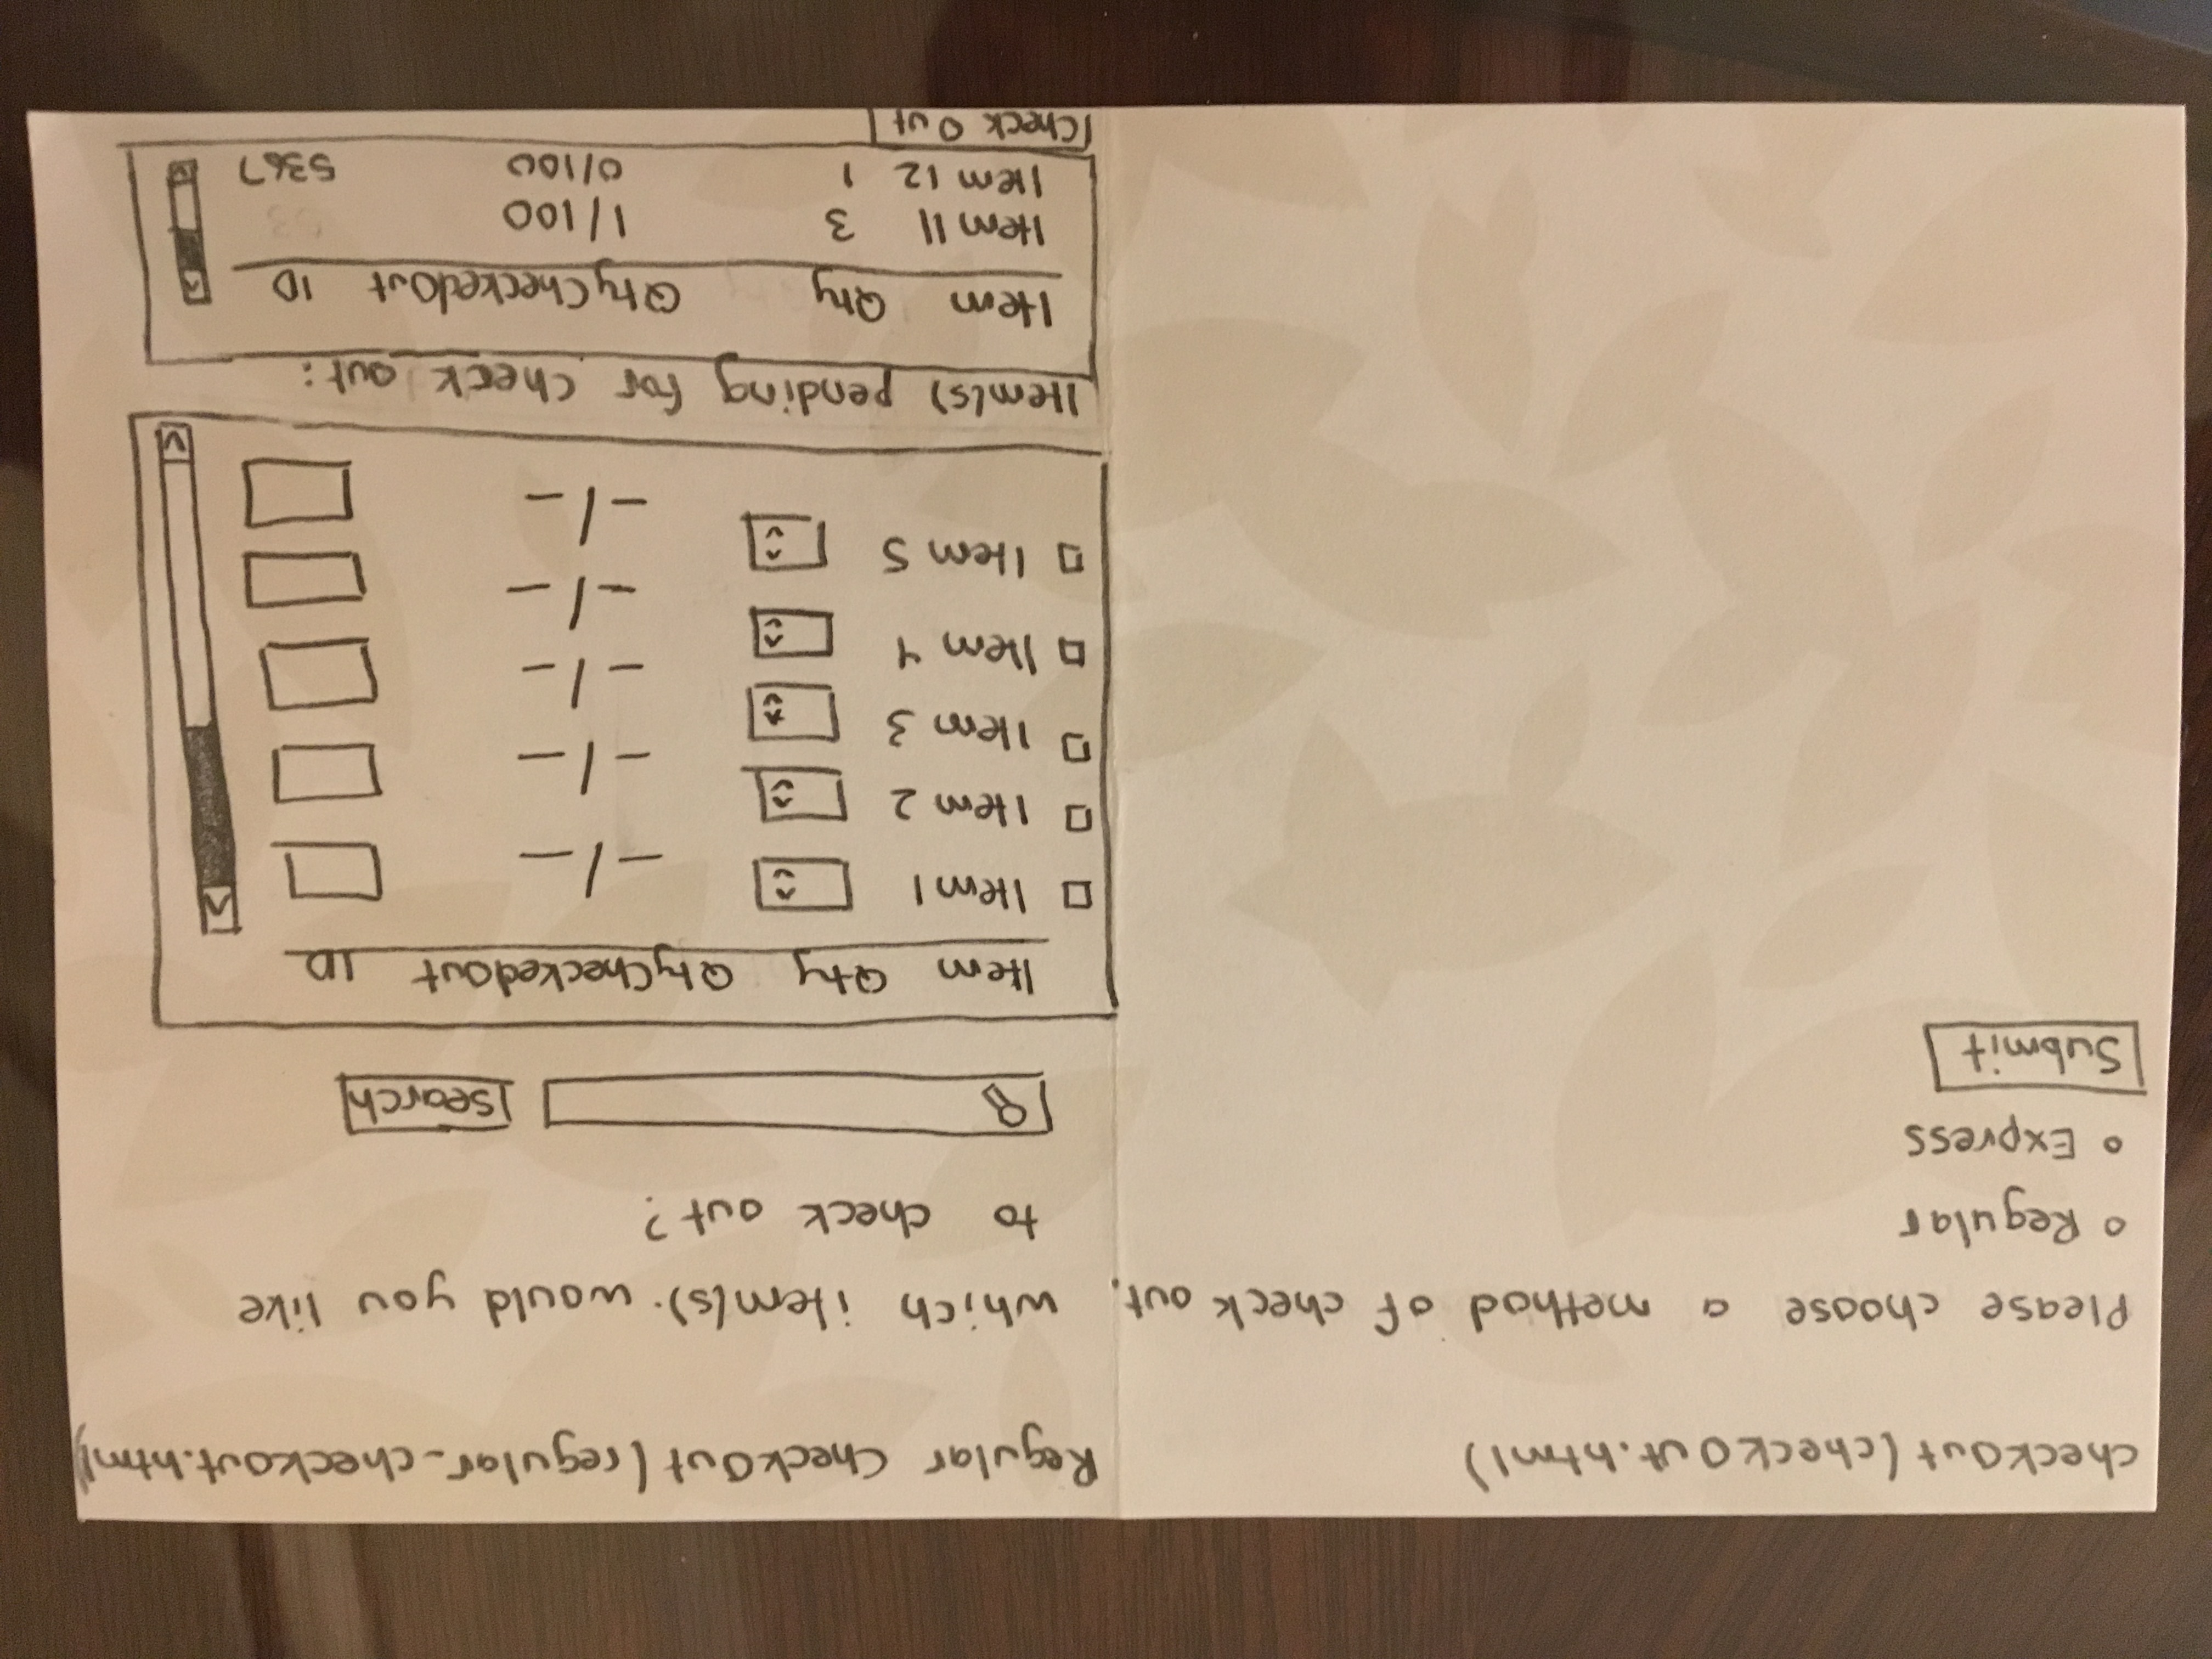 checkOut (checkOut.html)
Please choose a method of check out.
Regular
Express
Submit
Regular CheckOut (regular_checkout.html)
which item(s) would you like
to check out?
Search
Item Qty QtyCheckedOut ID
Item 1 -/-
Item 2 -/-
Item 3 -/-
Item 4 -/-
Item 5 -/-
Item(s) pending for check out:
Item Qty QtyCheckedOut ID
Item 11 3 1/100
Item 12 1 0/100 5367
Check Out